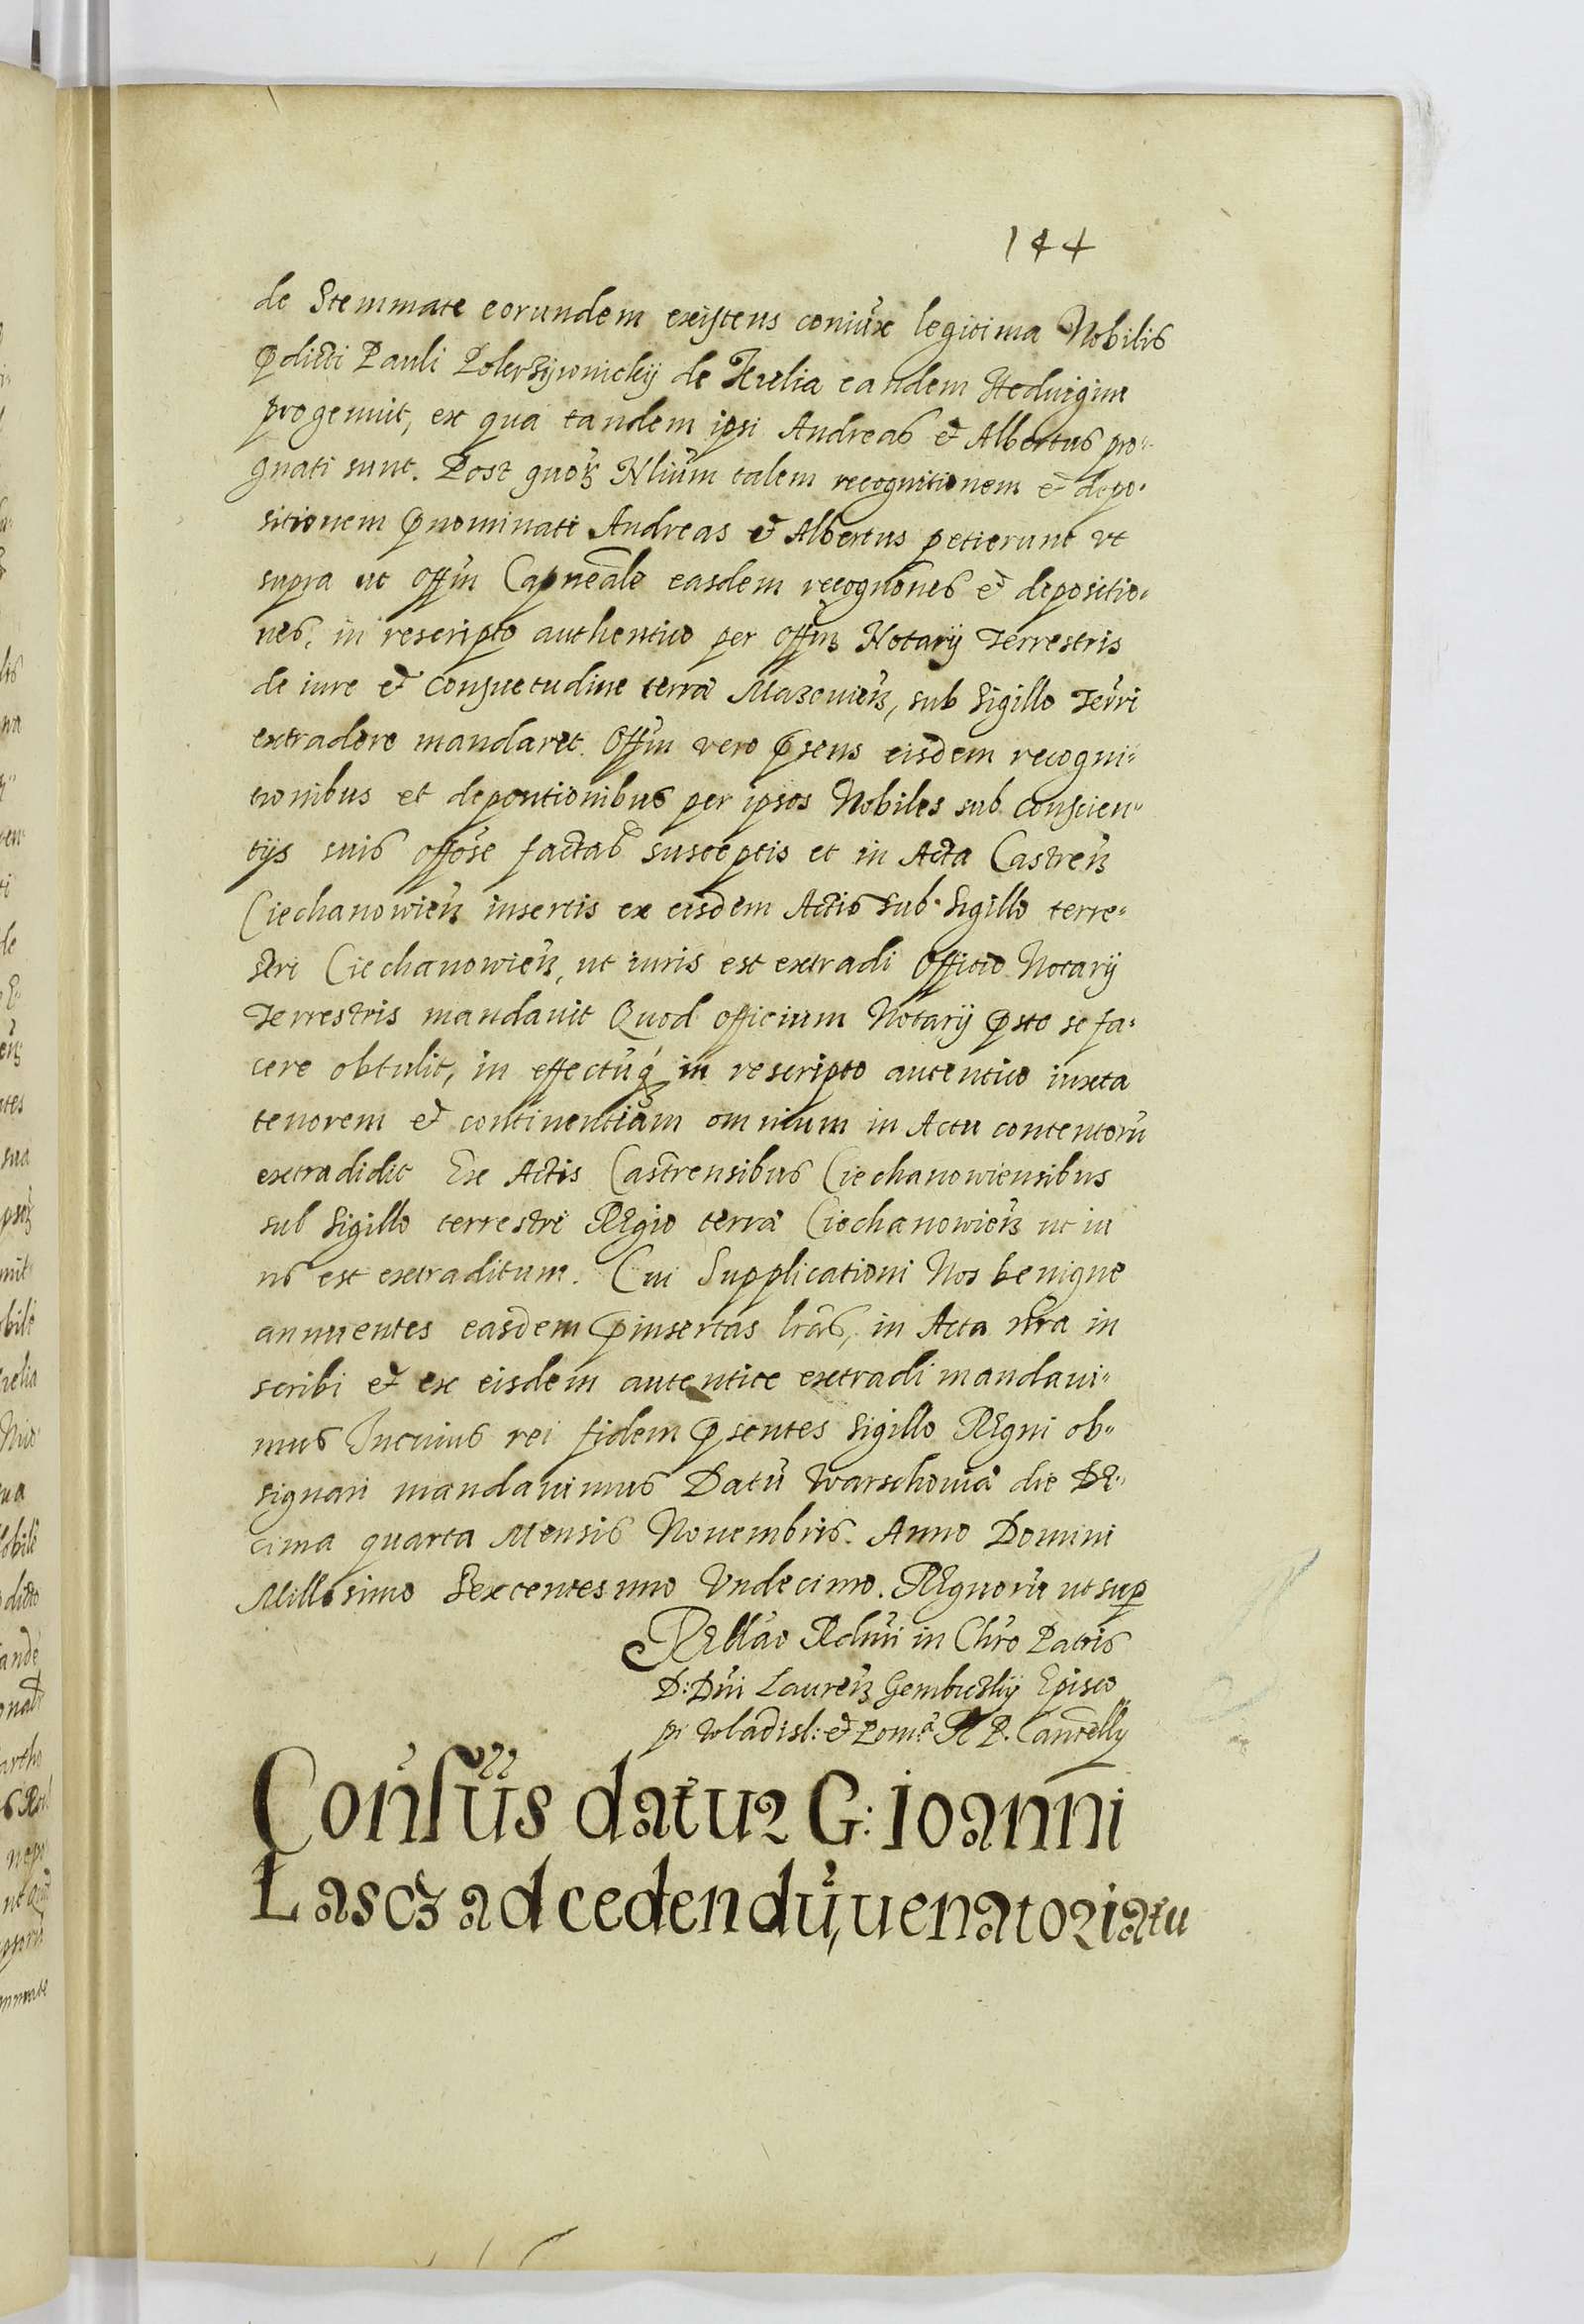 144
de Stemmate eorundem existens coniux legitima Nobilis
pdicti Pauli de Zrelia eandem Heduigim
progenuit, ex qua tandem ipsi Andreas et Albertus pro-
gnati sunt. Post quoꝝ Nlium talem recognitionem et depo-
sitionem pnominati Andreas et Albertus petierunt ut
supra ut Offm Capneale easdem recognones et depositio-
nes, in rescripto authentico per Offm Notarij Terrestris
de iure et consuetudine terræ Mazouien, sub Sigillo Terri
extradere mandaret. Offm vero psens eisdem recogni-
tionibus et depontionibus per ipsos Nobiles sub conscien-
tijs suis offose factas susceptis et in Acta Castren
Ciechanowien insertis ex eisdem Actis sub Sigillo terre-
stri Ciechanowien, ut iuris est extradi Officio Notarij
Terrestris mandauit Quod officium Notarij psto se fa-
cere obtulit, in effectuq in rescripto autentico iuxta
tenorem et continentiam omnium in Actu contentoru
extradidit Ex Actis Castrensibus Ciechanowiensibus
sub Sigillo terrestri REgio terræ Ciechanowien ut iu
ris est extraditum. Cui Supplicationi Nos benigne
annuentes easdem pinsertas lras, in Acta nra in
scribi et ex eisdem autentice extradi mandaui-
mus Incuius rei fidem psentes Sigillo REgni ob-
signari mandauimus Datu Warschouiæ die DE-
cima quarta Mensis Nouembris. Anno Domini
Millesimo Sexcentesimo Vndecimo. REgnoru ut sup
REllao Rdmi in Chro Patris
D: Dni Lauren Gembiczkij Episco
pi Wladisl: et Pom: R P. Cancelly
Consus datur G: Ioanni
Lascz ad cedendu, uenatoriatu